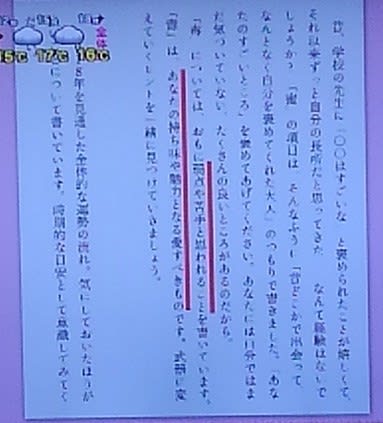 昔、学校の先生に「〇〇はすごいな」と褒められたことが嬉しくて、
それ以来ずっと自分の長所だと思ってきた なんて経験はないで
しょうか? 「蜜」の項目は、そんなふうに「昔どこかで出会って、
なんとなく自分を褒めてくれた大人」のつもりで書きました。「あな
たのすごいところ」を褒めてあげてください。あなたには自分ではま
だ気づいていない、たくさんの良いところがあるのだから。
「毒」については、おもに弱点や苦手と思われることを書いています。
「毒」は、あなたの持ち味や魅力となる愛すべきものです。武器に変
えていくヒントを一緒に見つけていきましょう。
8年を見通した全体的な運勢の流れ。気にしておいたほうが
について書いています。時期的な目安として意識してみてく
全体
15℃
17℃
16℃